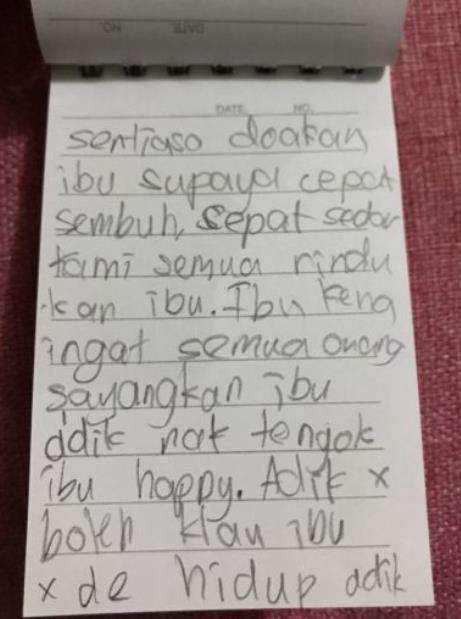 DATE NO.
DATE NO.
sentiaso doakan
ibu supaya cepat
sembuh, sepat sedar
kami semua rindu
kan ibu. Ibu kena
ingat semua orang
sayangkan ibu
ddik nak tengok
ibu happy. Adik x
boleh klau ibu
x de hidup adik